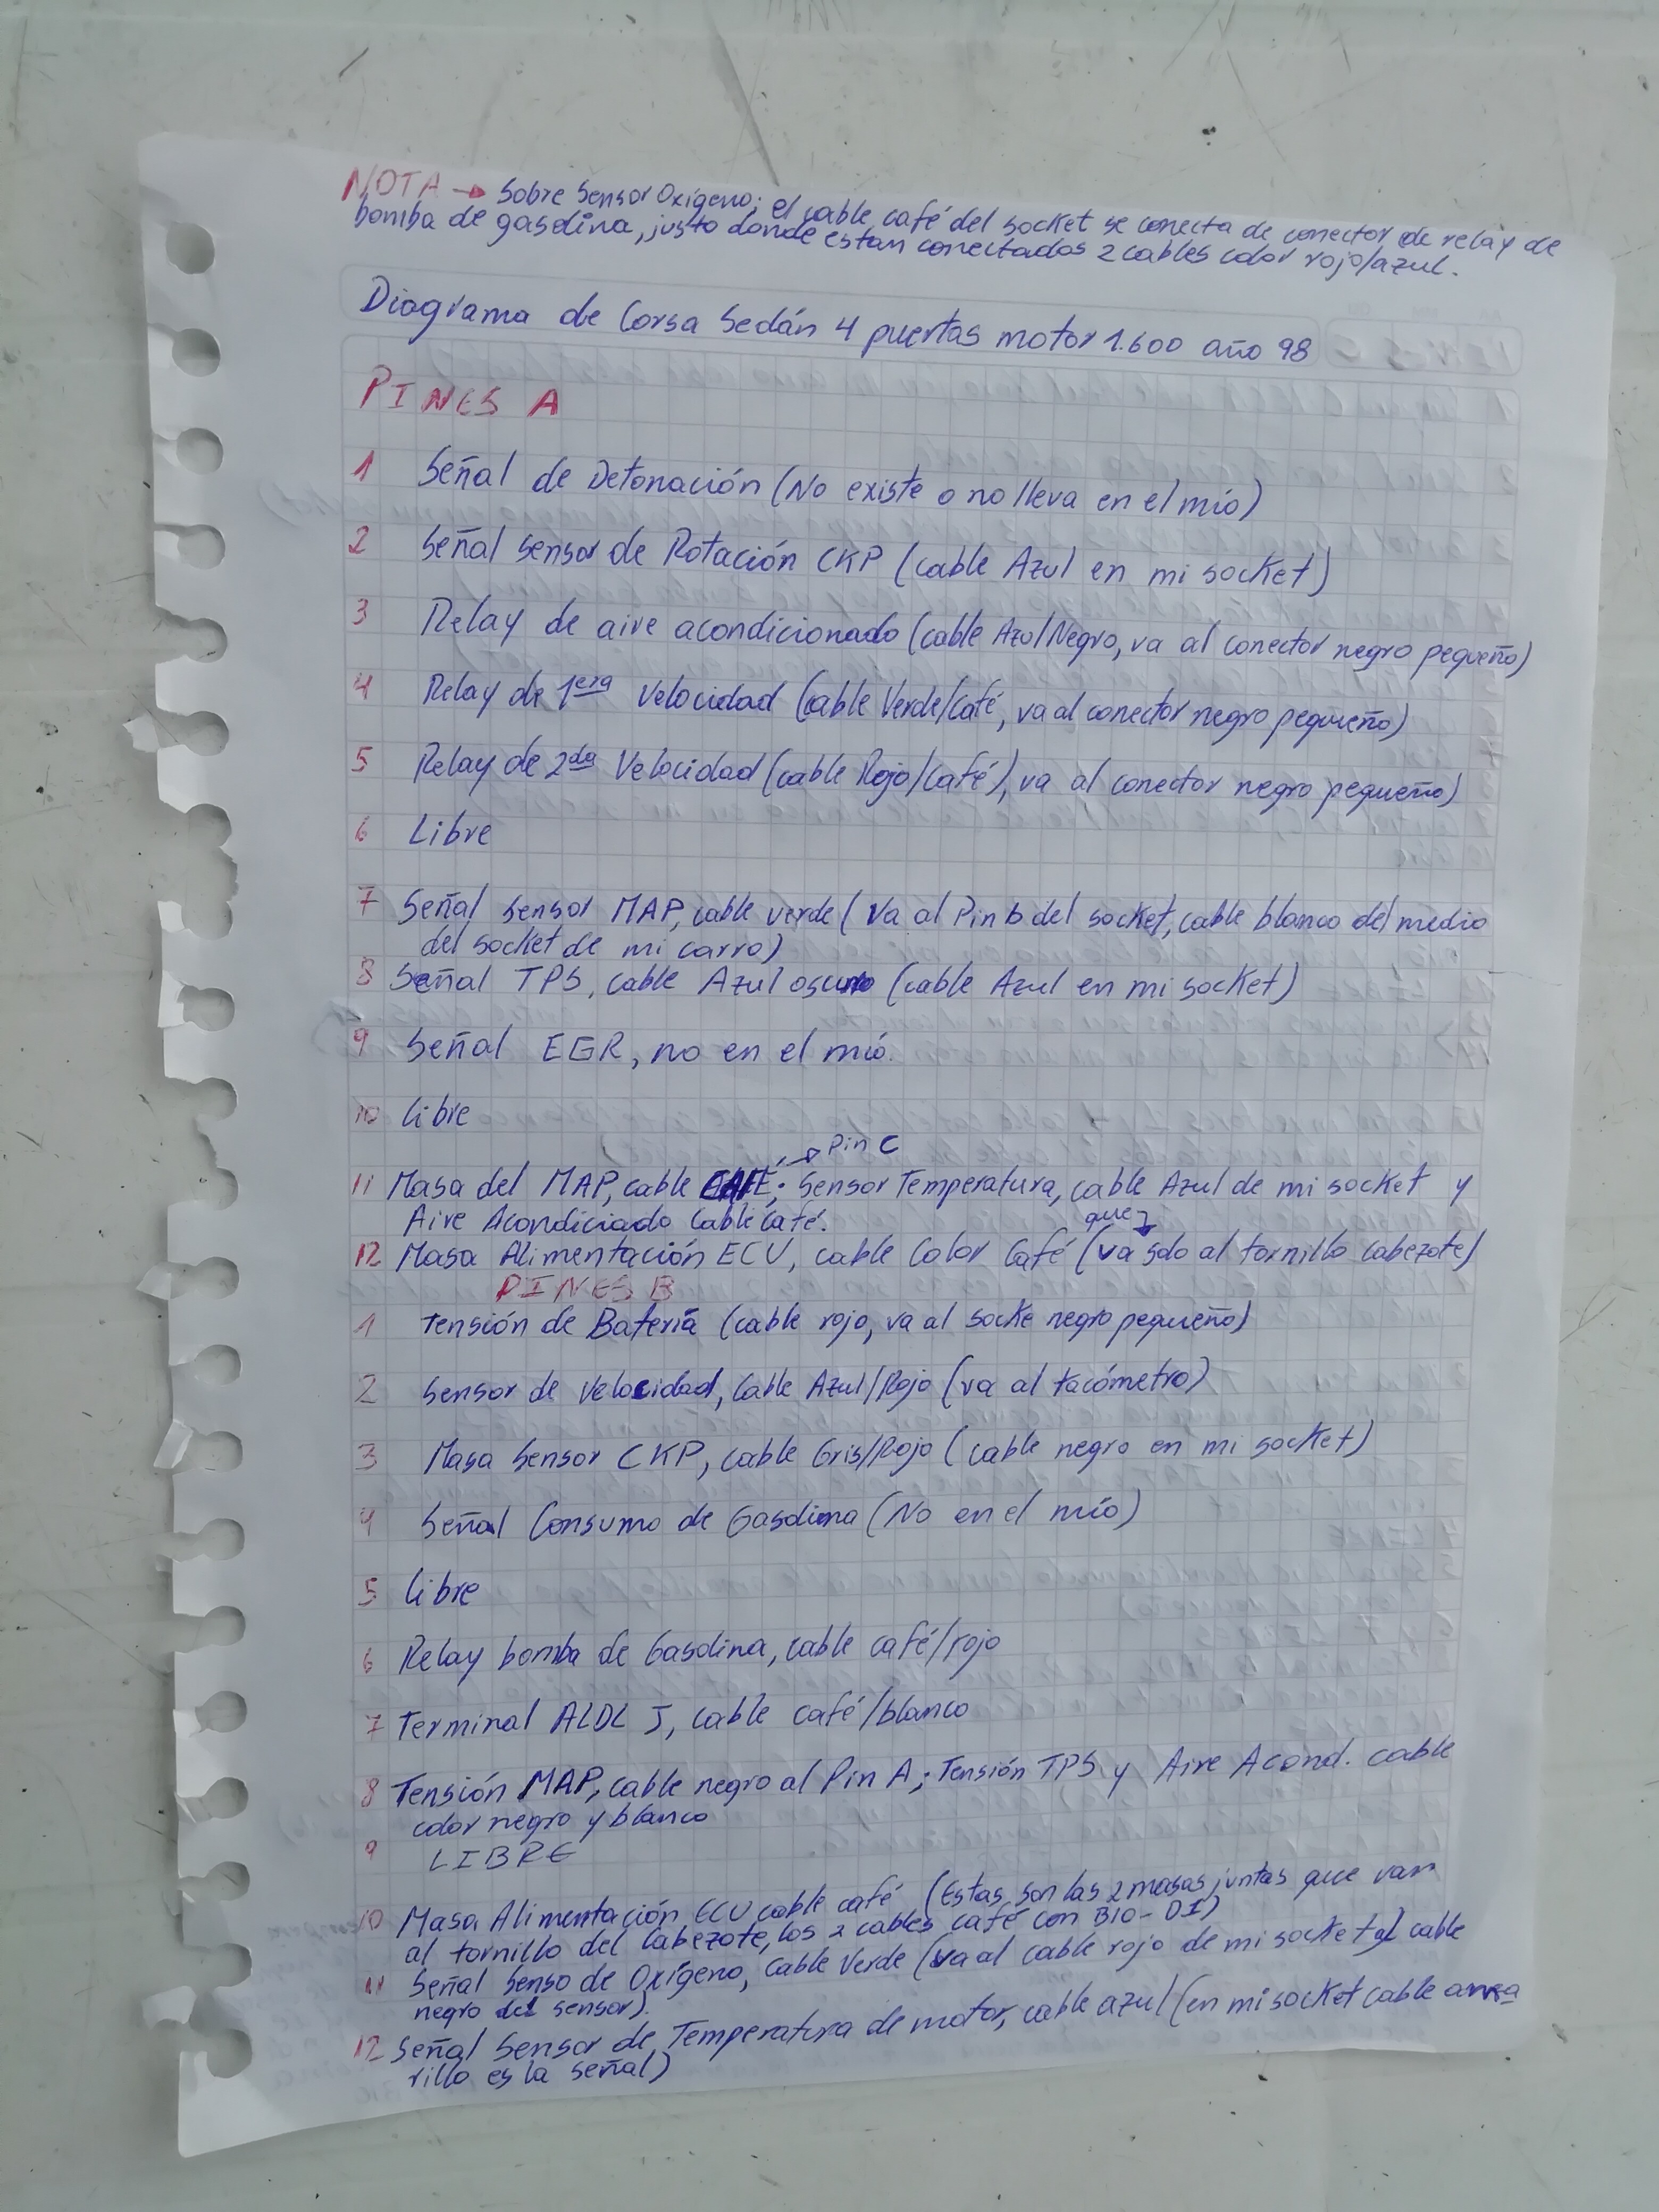 NOTA → Sobre Sensor Oxígeno; el cable café del socket se conecta de conector de relay de
bomba de gasolina, justo donde estan conectados 2 cables color rojo/azul.
Diagrama de Corsa Sedán 4 puertas motor 1.600 año 98
PINES A
1 Señal de Detonación (No existe o no lleva en el mío)
2 Señal sensor de Rotación CKP (cable Azul en mi socket)
3 Relay de aire acondicionado (cable Azul Negro, va al conector negro pequeño)
4 Relay de 1era Velocidad (cable Verde/Café, va al conector negro pequeño)
5 Relay de 2da Velocidad (cable Rojo/Café), va al conector negro pequeño)
6 Libre
7 Señal sensor MAP, cable verde (Va al Pin b del socket, cable blanco del medio
del socket de mi carro)
8 Señal TPS, cable Azul oscuro (cable Azul en mi socket)
9 Señal EGR, no en el mío.
10 Libre
→ Pin C
11 Masa del MAP, cable CAFÉ; Sensor Temperatura, cable Azul de mi socket y
Aire Acondiciado Cable Café.
que
12 Masa Alimentación ECU, cable Color Café (va solo al tornillo cabezote)
PINES B
1 Tensión de Batería (cable rojo, va al socke negro pequeño)
2 Sensor de Velocidad, Cable Azul/Rojo (va al tacómetro)
3 Masa Sensor CKP, cable Gris/Rojo (cable negro en mi socket)
4 Señal Consumo de Gasolina (No en el mío)
5 Libre
6 Relay bomba de Gasolina, cable café/rojo
7 Terminal ALDL J, cable café/blanco
8 Tensión MAP, cable negro al Pin A; Tensión TPS y Aire Acond. cable
color negro y blanco
9 LIBRE
10 Masa Alimentación ECU cable café (Estas son las 2 masas juntas que van
al tornillo del Cabezote, los 2 cables café con B10-D1)
11 Señal Senso de Oxígeno, Cable Verde (va al cable rojo de mi socket al cable
negro del sensor).
12 Señal Sensor de Temperatura de motor, cable azul (en mi socket cable ama
rillo es la señal)